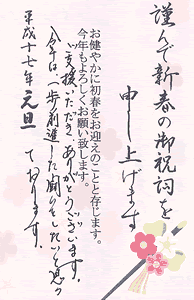 謹んで新春の御祝詞を
申し上げます
お健やかに初春をお迎えのことと存じます。
今年もよろしくお願い致します。
ご支援いただき、ありがとうございます。
今年は一歩前進した関りをしたいと思っ
ております。
平成十七年 元旦